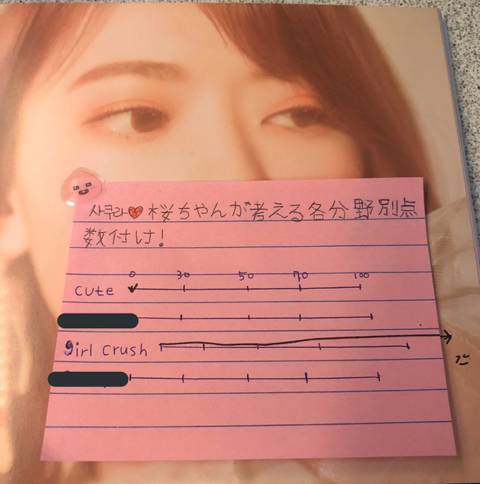 사쿠라 桜ちゃんが考える各分野別点
数付け!
0 30 50 70 100
cute
girl crush